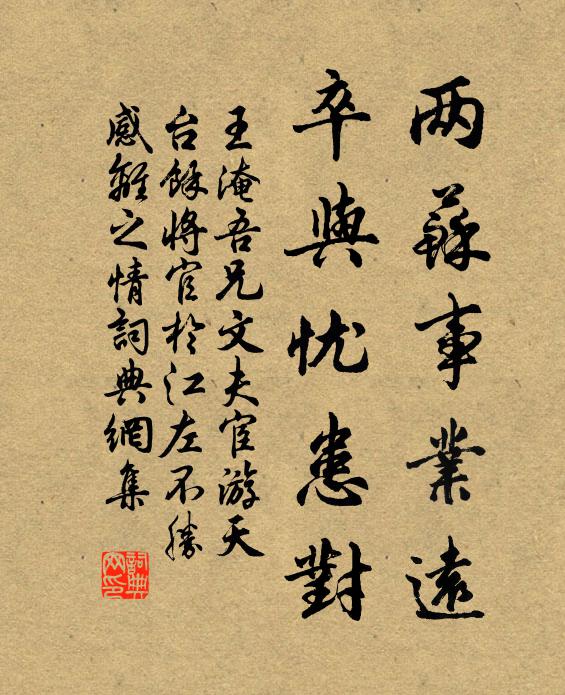 两蘇事業遠
卒與忧患對
王淹吾兄文夫宦游天
台餘将官於江左不勝
感離之情詞典網集
詞典
网印